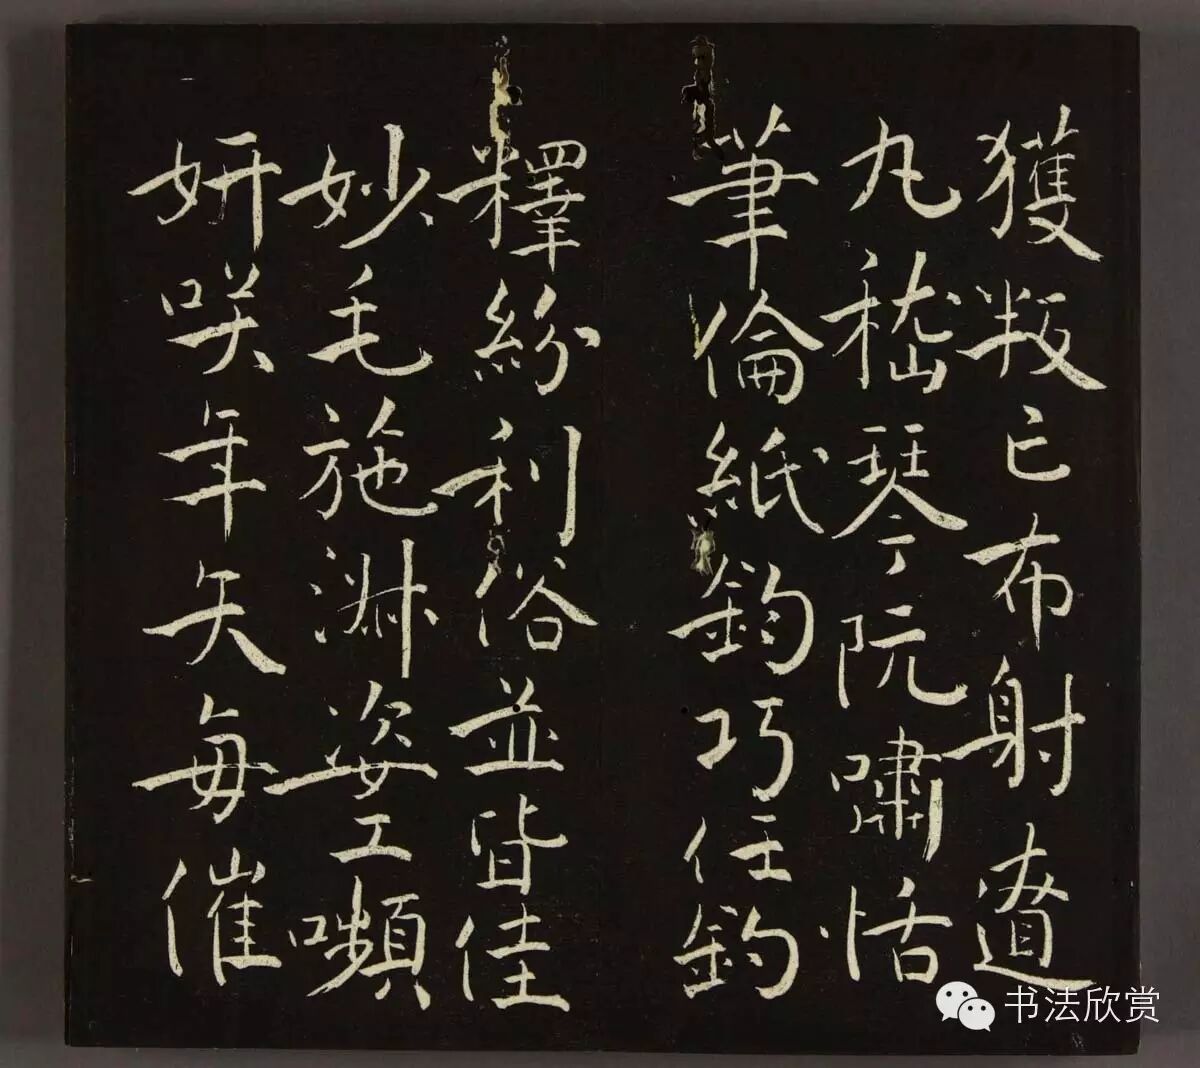 獲叛亡布射遼
丸嵇琴阮嘯恬
筆倫紙鈞巧任釣
釋紛利俗並皆佳
妙毛施淑姿工嚬
妍咲年矢每催
书法欣赏